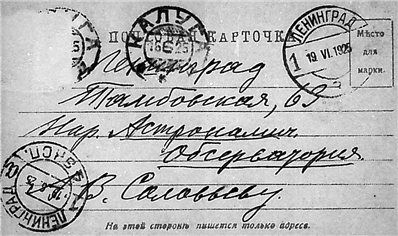 КАЛУГА
16 6 25
ПОЧТОВАЯ КАРТОЧКА
ЛЕНИНГРАД
1
19 VI. 1925
Мѣсто
для
марки.
Ленинград
Тамбовская, 63
Нар. Астрономич.
Обсерватория
В. Соловьеву.
ЛЕНИНГРАД
На этой сторонѣ пишется только адресъ.